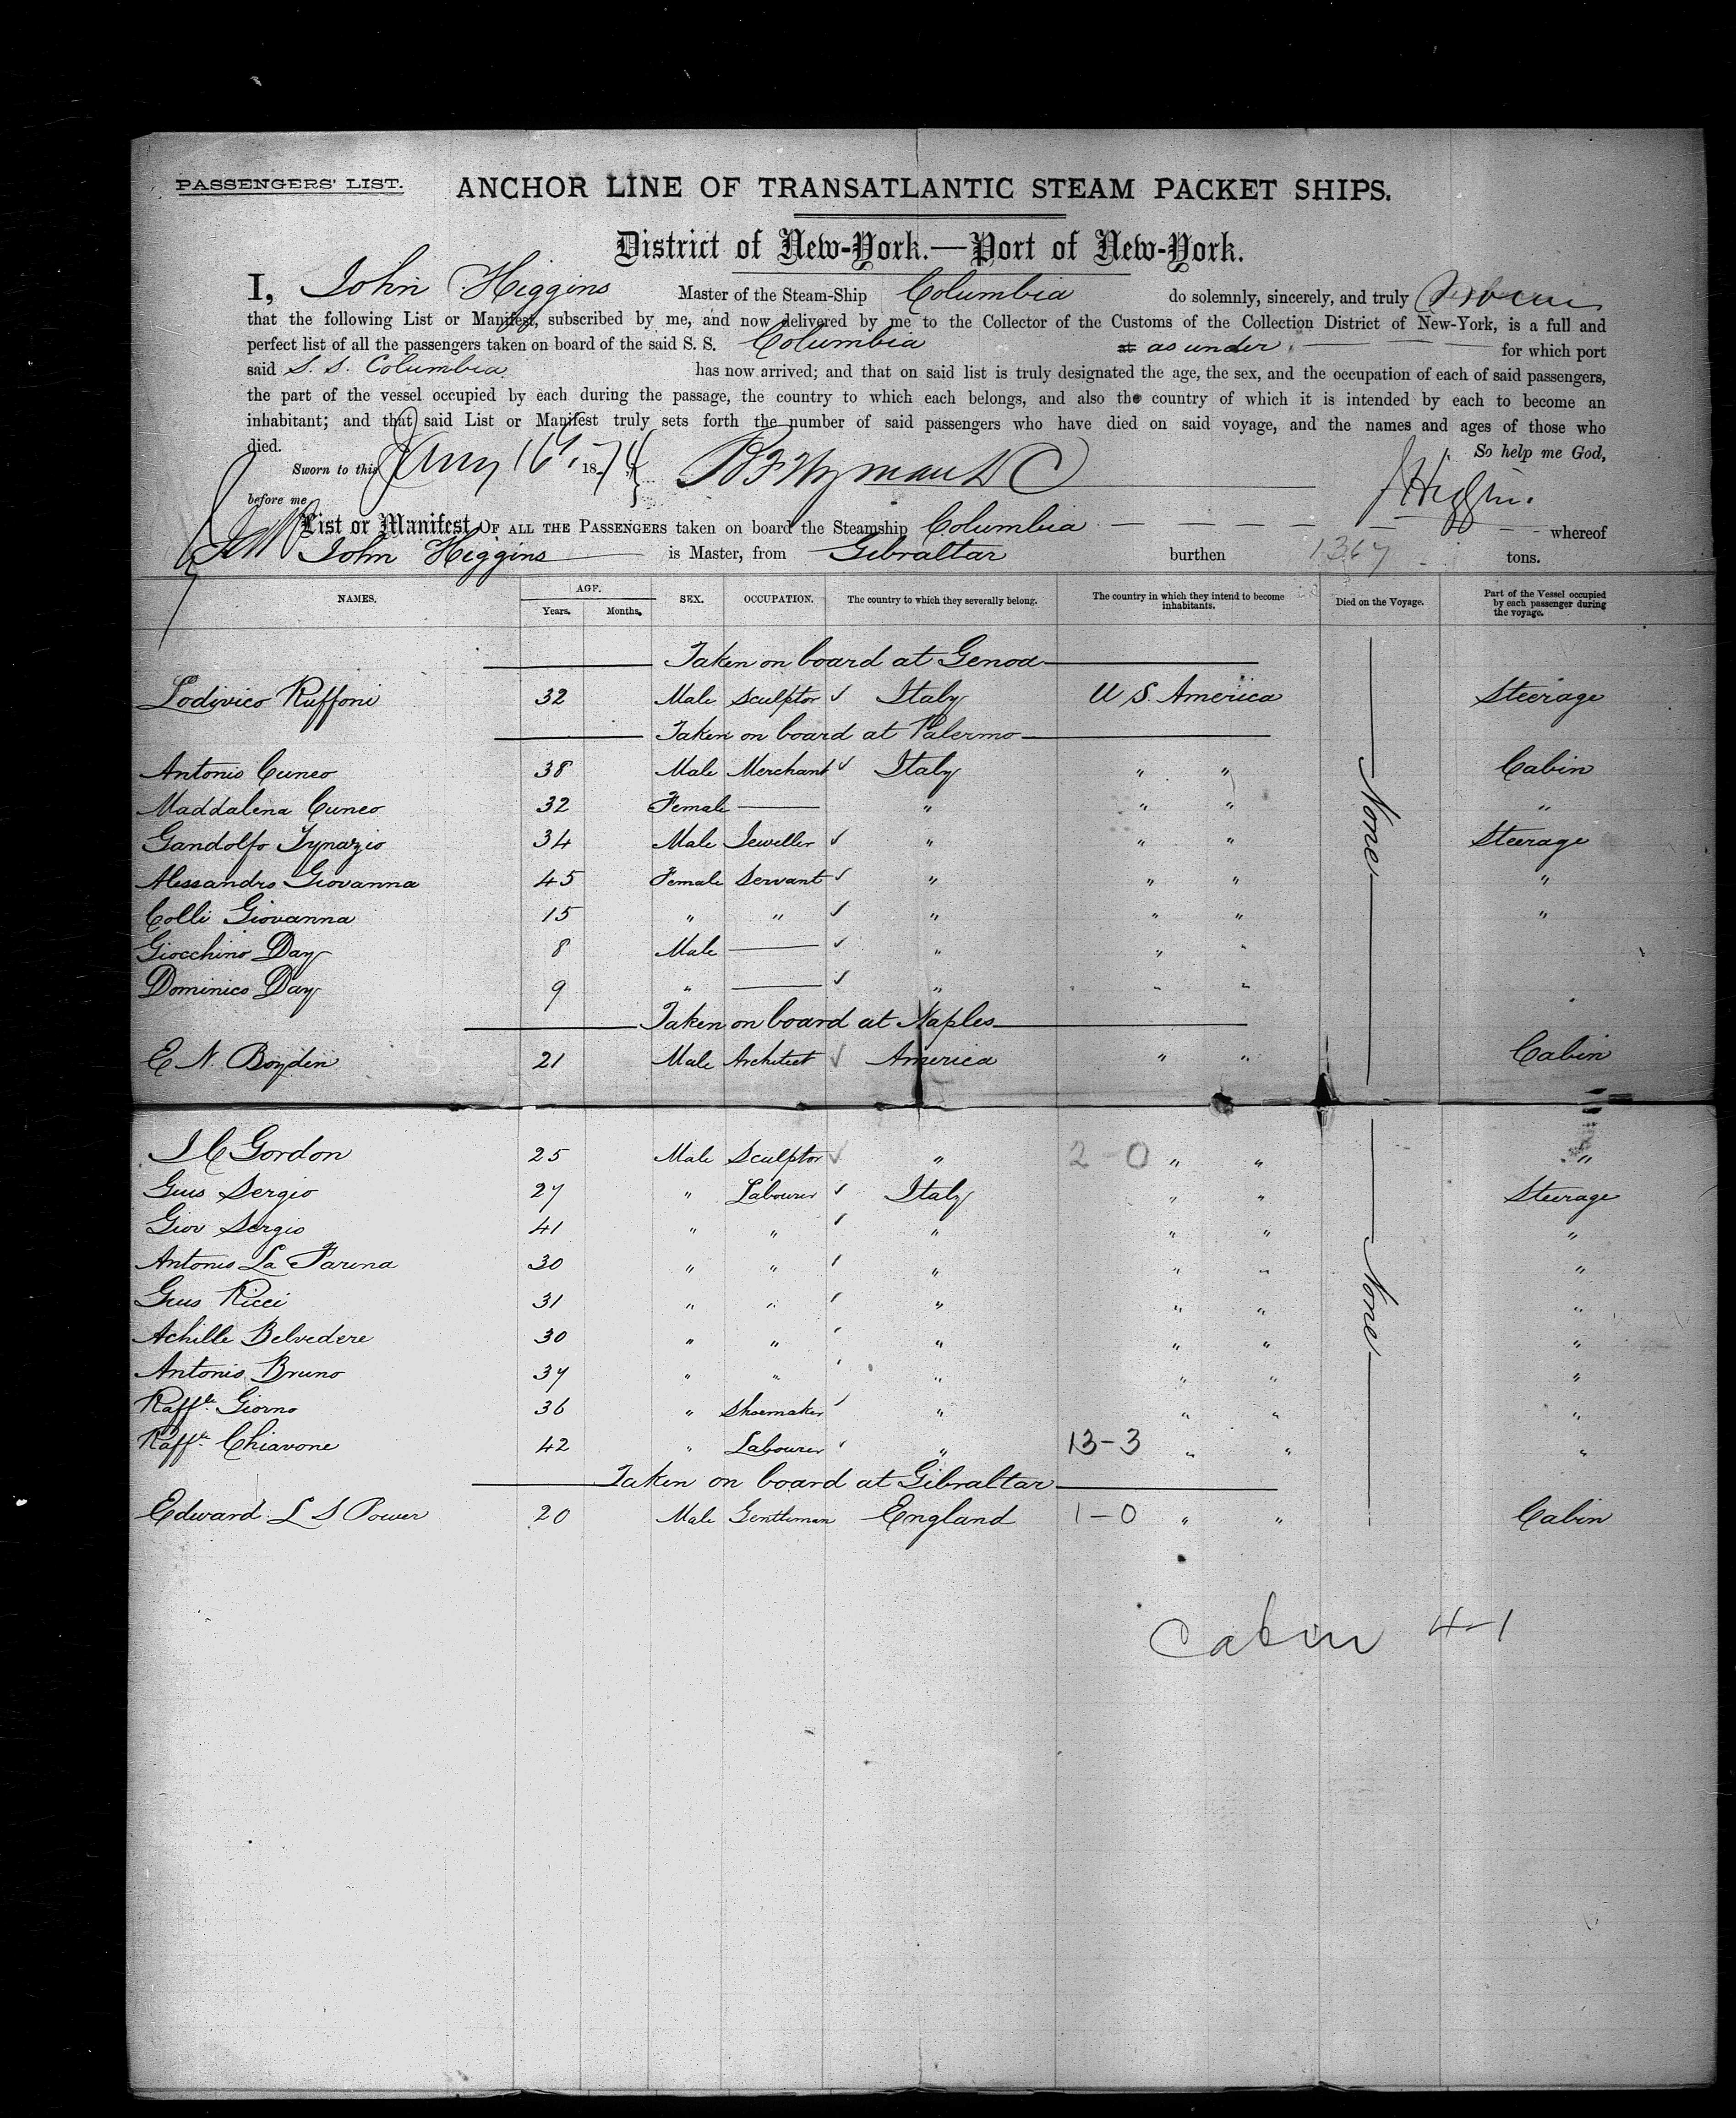 PASSENGERS' LIST. ANCHOR LINE OF TRANSATLANTIC STEAM PACKET SHIPS.
District of New-York.—Port of New-York.
I, John Higgins Master of the Steam-Ship Columbia do solemnly, sincerely, and truly
that the following List or Manifest, subscribed by me, and now delivered by me to the Collector of the Customs of the Collection District of New-York, is a full and
perfect list of all the passengers taken on board of the said S. S. Columbia at as under for which port
said S. S. Columbia has now arrived; and that on said list is truly designated the age, the sex, and the occupation of each of said passengers,
the part of the vessel occupied by each during the passage, the country to which each belongs, and also the country of which it is intended by each to become an
inhabitant; and that said List or Manifest truly sets forth the number of said passengers who have died on said voyage, and the names and ages of those who
died. So help me God,
Sworn to this 16 1874
before me J Higgins.
List or Manifest OF ALL THE PASSENGERS taken on board the Steamship Columbia whereof
John Higgins is Master, from Gibraltar burthen 1367 tons.
NAMES. AGE. Years. Months. SEX. OCCUPATION. The country to which they severally belong. The country in which they intend to become inhabitants. Died on the Voyage. Part of the Vessel occupied by each passenger during the voyage.
Taken on board at Genoa
Lodivico Ruffoni 32 Male Sculptor ✓ Italy U S. America Steerage
Taken on board at Palermo
Antonio Cuneo 38 Male Merchant ✓ Italy " " Cabin
Maddalena Cuneo 32 Female — " " " "
Gandolfo Iynazio 34 Male Jeweller ✓ " " " Steerage
Alessandro Giovanna 45 Female Servant ✓ " " " "
Colli Giovanna 15 " " ✓ " " " "
Giocchino Day 8 Male — ✓ " " "
Dominico Day 9 " — ✓ " " " "
None
Taken on board at Naples
E N. Boyden 21 Male Architect ✓ America " " Cabin
J C Gordon 25 Male Sculptor ✓ " 2-0 " " "
Gius Sergio 27 " Labourer ✓ Italy " " Steerage
Giov Sergio 41 " " ✓ " " " "
Antonio La Farina 30 " " ✓ " " " "
Gius Ricci 31 " " ✓ " " " "
Achille Belvedere 30 " " ✓ " " " "
Antonio Bruno 37 " " ✓ " " " "
Raffle. Giorno 36 " Shoemaker ✓ " " " "
Raffle. Chiavone 42 " Labourer ✓ " 13-3 " " "
None
Taken on board at Gibraltar
Edward L S Power 20 Male Gentleman England 1-0 " " Cabin
Cabin 4-1